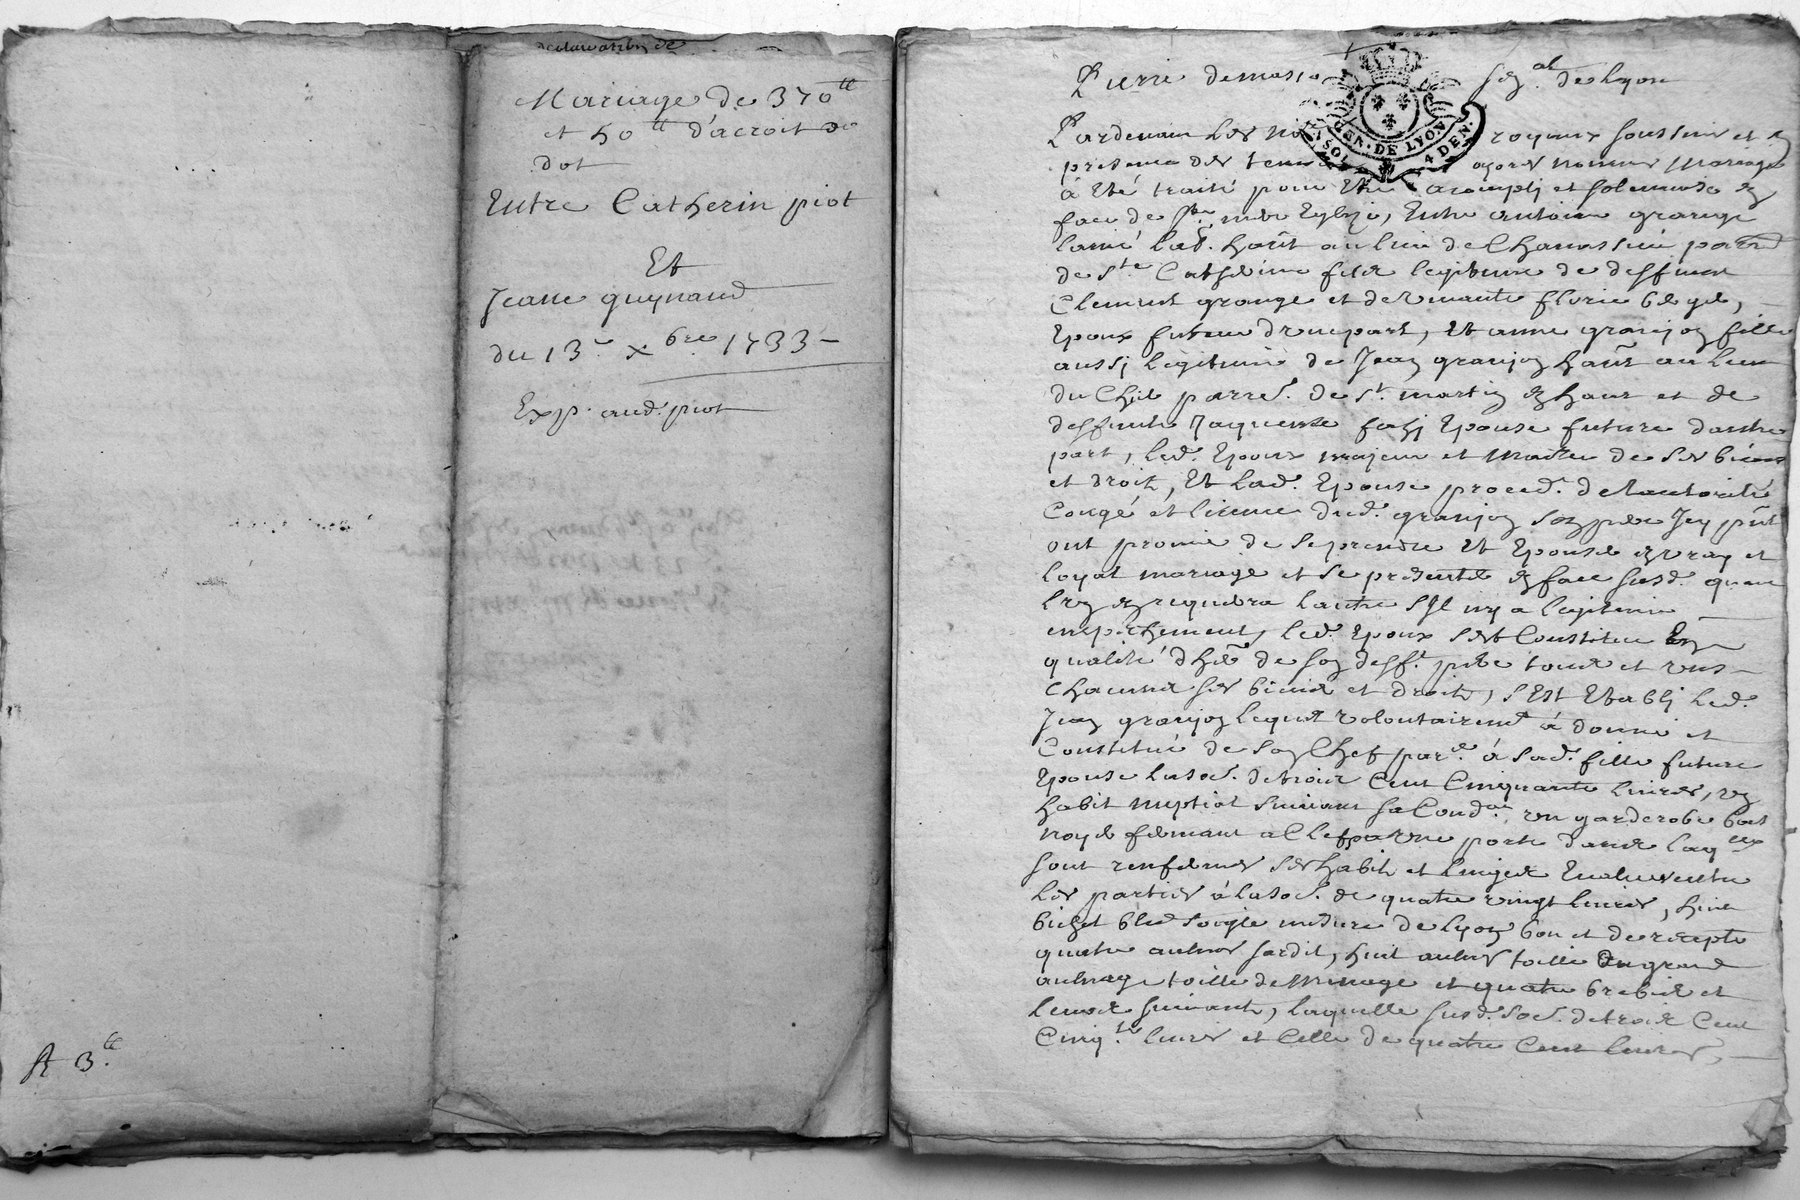 declaration de
Mariage de 370 tt
et 50 tt d'acroit de
dot
Entre Catherin piot
Et
Jeanne guynand
du 13e xbre 1733
Exp. aud. piot
A 3 tt.
Pierre demasso seal de lyon
GEN. DE LYON
SOL 4 DEN.
Pardevant les no royaux soussnes et en
presence des temoins apres nommes Mariage
à Eté traité pour Etre acomply et solemnisé en
face de ste mere Eglize, Entre antoine grange
lainé lab. hant au lieu de Chavassieu parr.
de ste Catherine fils legitime de deffunt
Clement grange et de vivante florie
Epoux futeur d'une part, Et anne granjon fille
aussj legitime de Jean granjon hant au lieu
du parre. de st. martin en haut et de
deffunte Epouse future dautre
part, led. Epoux majeur et Maitre de ses biens
et droits, Et lad. Epouse proced. de lautorité
Congé et licence dud. granjon son pere Icy pnt
ont promis de se prendre Et Epouser en vray et
loyal mariage et se presenter en face susd. quand
lun en requerera lautre sil ny a legitime
empechement, led. Epoux sest Constitue En
qualité d'her de son deff. pere tous et uns
chacuns ses biens et droits, s'Est Etably led.
Jean granjon lequel volontairemt à donné et
Constitué de son Chef par à sad. fille future
Epouse la som. de trois Cent Cinquante livres, un
habit nuptial suivant sa Condon, un garderobe bois
noyer fermant a Clef a une porte dans laqlle
sont renfermes ses habits et linges Evalues entre
les parties à la som. de quatre vingt livres, huit
bichet bled soigle mesure de Lyon bon et de recepte
quatre aulnes sardit, huit aulnes toille du grand
aulnage toille de Menage et quatre brebis et
leurs suivants, laquelle susd. som. de trois Cent
Cinqte livres et Celle de quatre Cent livres,